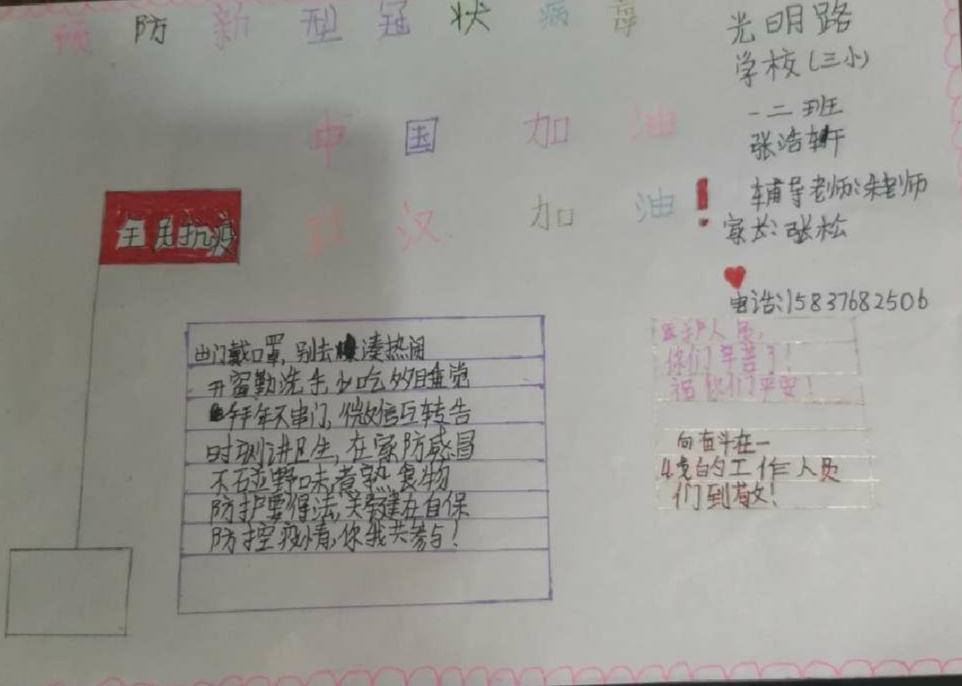 预防新型冠状病毒
中国加油
武汉加油!
光明路
学校(三小)
一二班
张浩轩
辅导老师:宋老师
家长:张松
电话:15837682506
全民抗疫
出门戴口罩,别去凑热闹
开窗勤洗手,少吃多睡觉
拜年不串门,微信互转告
时刻讲卫生,在家防感冒
不碰野味,煮熟食物
防护要得法,关键在自保
防控疫情,你我共参与!
医护人员,
你们辛苦了!
祝你们平安!
向奋斗在一
线的工作人员
们到敬!